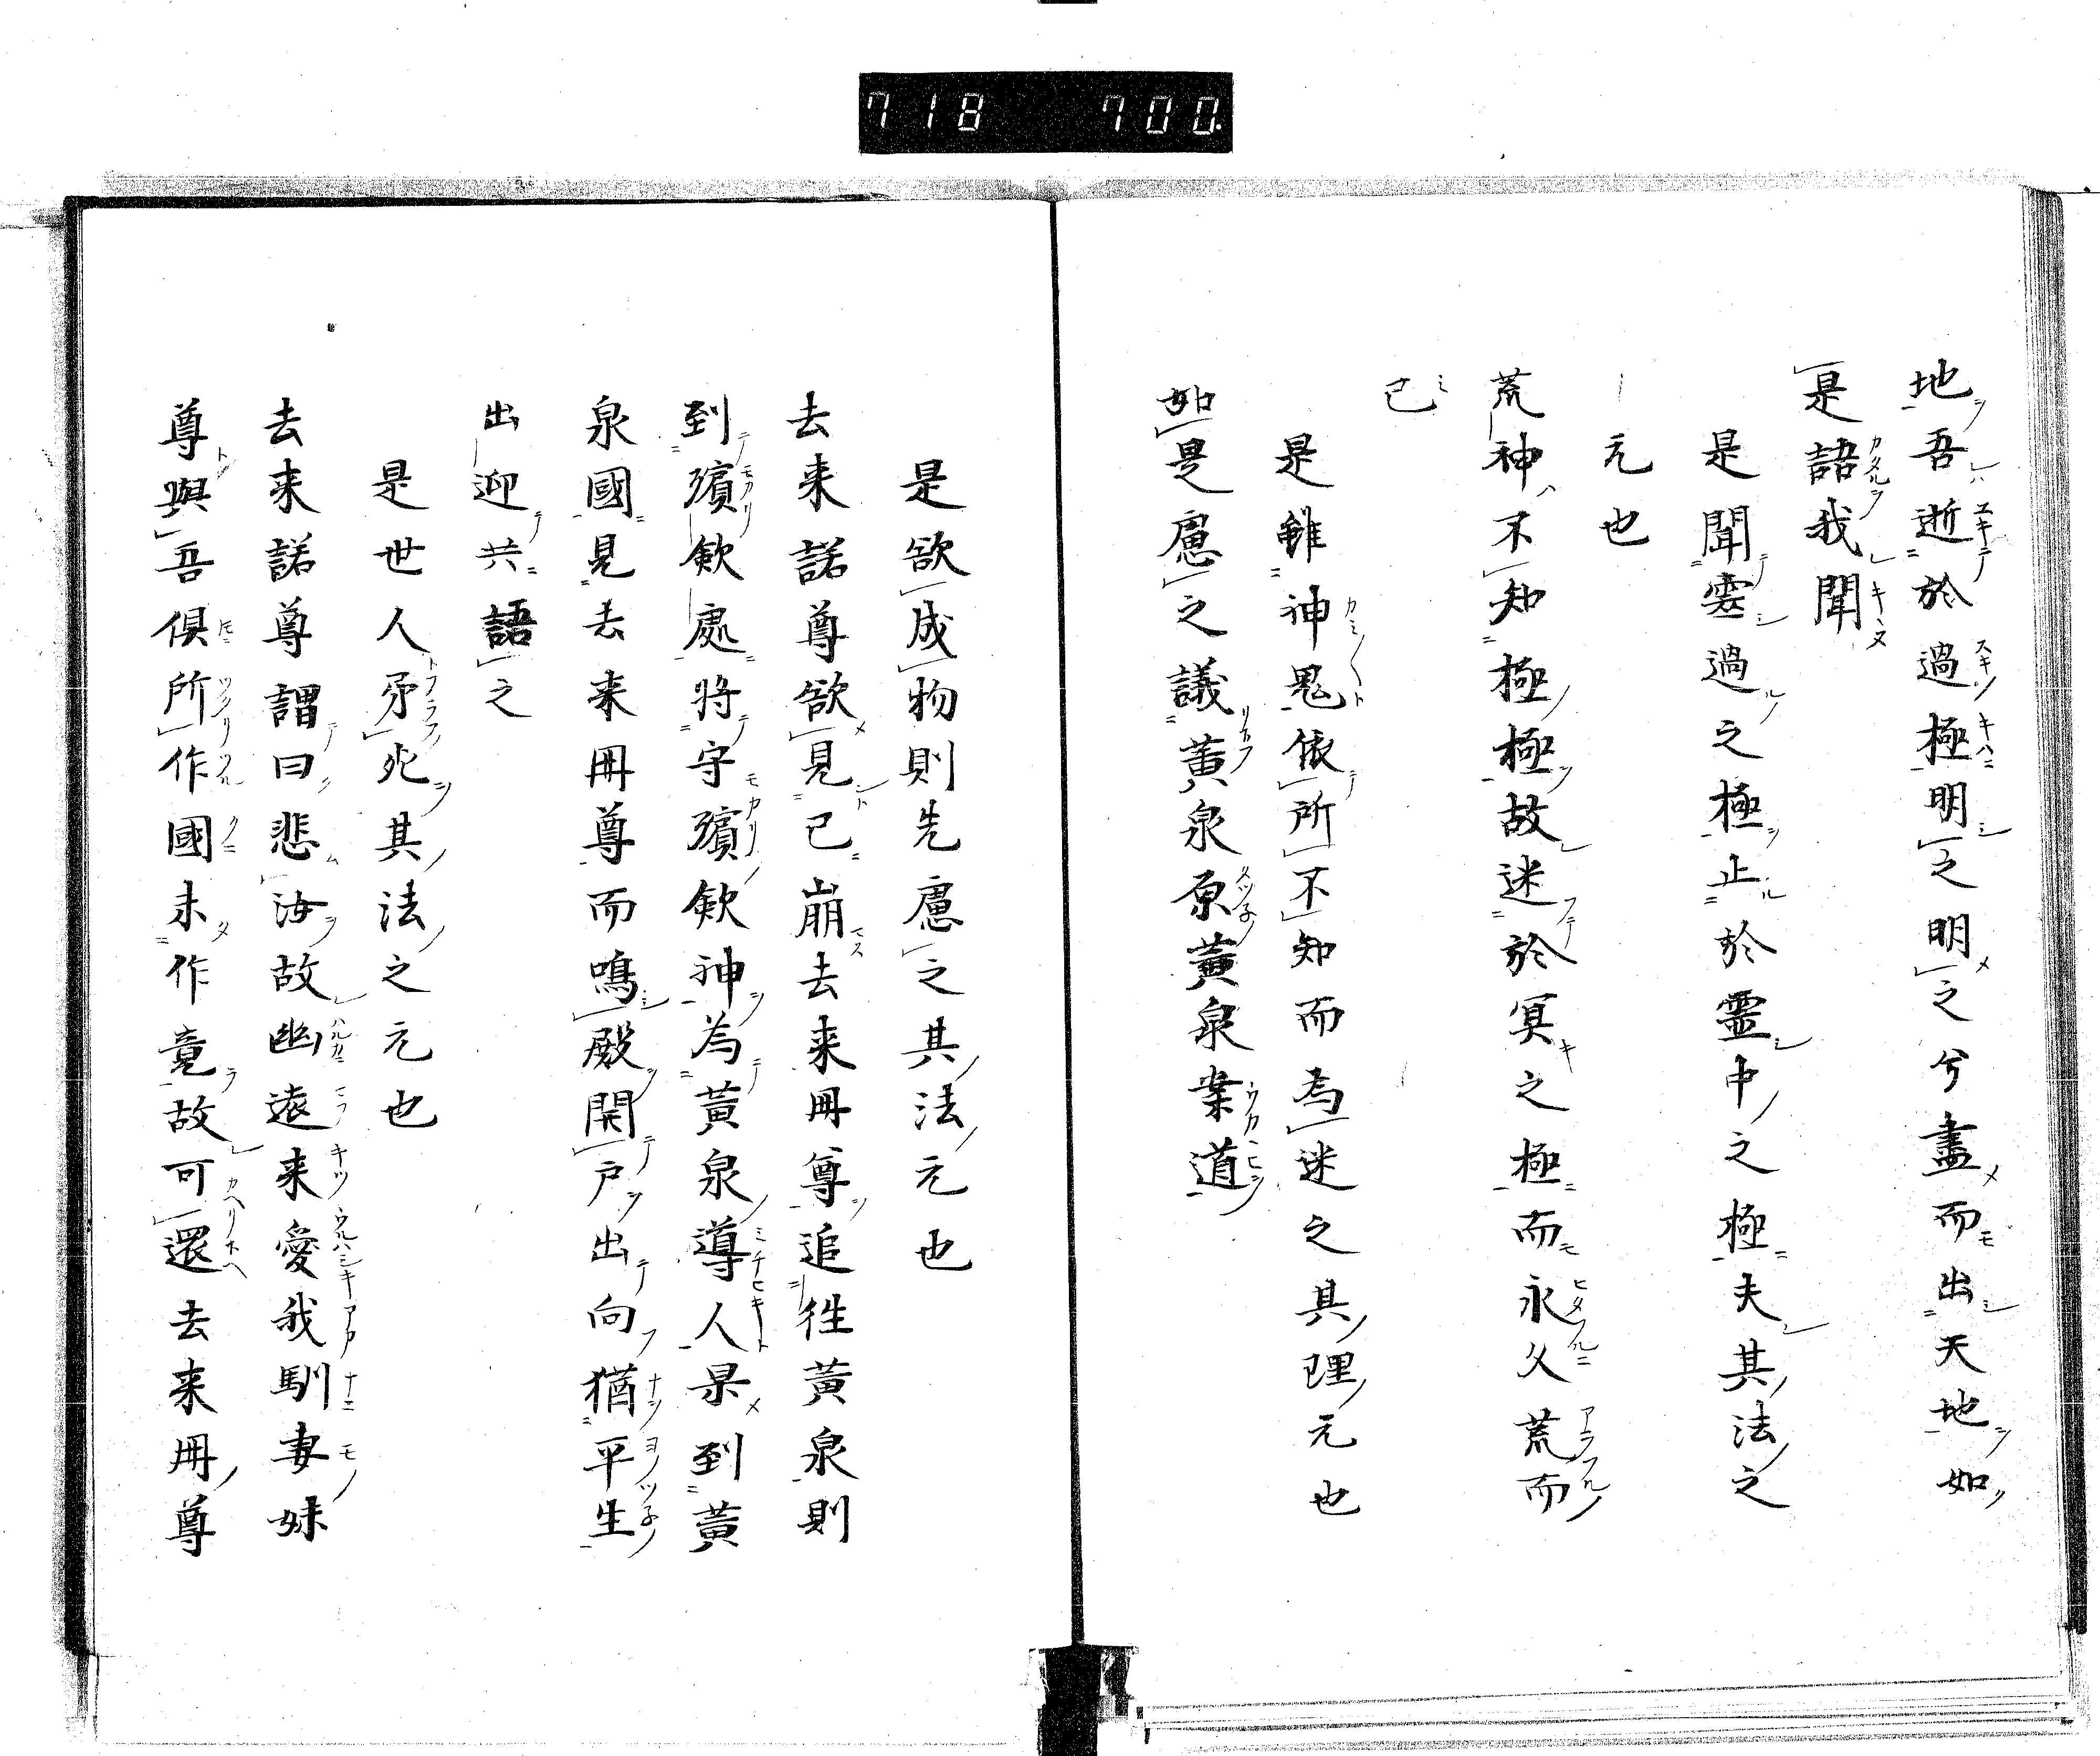 718 700.
地吾逝於過極明之明之兮盡而出天地如
是語我聞
是聞霊過之極止於霊中之極夫其法之
元也
荒神不知極極故迷於冥之極而永久荒而
已
是雖神鬼依所不知而為迷之其理元也
如是慮之議黄泉原黄泉業道
是欲成物則先慮之其法元也
去来諾尊欲見已崩去来冊尊追往黄泉則
到殯欽處将守殯欽神為黄泉導人杲到黄
泉國見去来冊尊而鳴殿開戸出向猶平生
出迎共語之
是世人弔死其法之元也
去来諾尊謂曰悲汝故幽遠来愛我馴妻妹
尊與吾倶所作國未作竟故可還去来冊尊